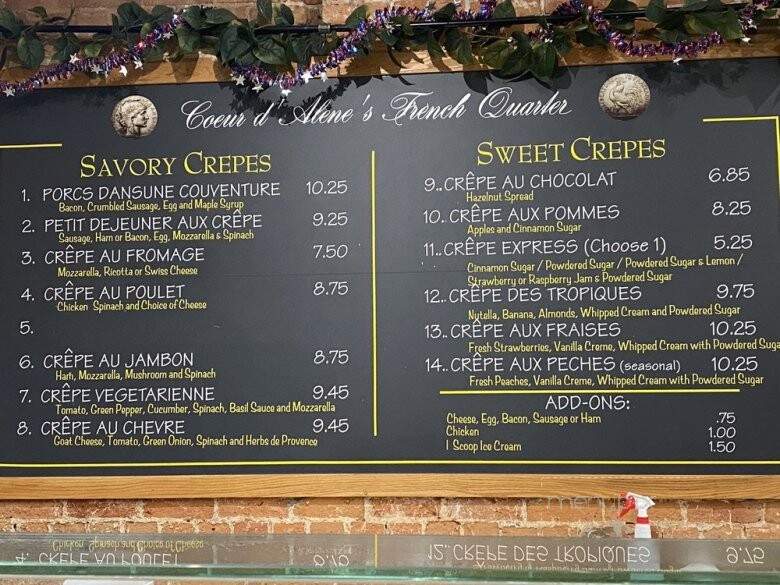 Coeur d'Alene's French Quarter
SAVORY CREPES
1. PORCS DANSUNE COUVENTURE 10.25
Bacon, Crumbled Sausage, Egg and Maple Syrup
2. PETIT DEJEUNER AUX CRÊPE 9.25
Sausage, Ham or Bacon, Egg, Mozzarella & Spinach
3. CRÊPE AU FROMAGE 7.50
Mozzarella, Ricotta or Swiss Cheese
4. CRÊPE AU POULET 8.75
Chicken Spinach and Choice of Cheese
5.
6. CRÊPE AU JAMBON 8.75
Ham, Mozzarella, Mushroom and Spinach
7. CRÊPE VEGETARIENNE 9.45
Tomato, Green Pepper, Cucumber, Spinach, Basil Sauce and Mozzarella
8. CRÊPE AU CHEVRE 9.45
Goat Cheese, Tomato, Green Onion, Spinach and Herbs de Provence
SWEET CREPES
9.. CRÊPE AU CHOCOLAT 6.85
Hazelnut Spread
10. CRÊPE AUX POMMES 8.25
Apples and Cinnamon Sugar
11.. CRÊPE EXPRESS (Choose 1) 5.25
Cinnamon Sugar / Powdered Sugar / Powdered Sugar & Lemon /
Strawberry or Raspberry Jam & Powdered Sugar
12.. CRÊPE DES TROPIQUES 9.75
Nutella, Banana, Almonds, Whipped Cream and Powdered Sugar
13.. CRÊPE AUX FRAISES 10.25
Fresh Strawberries, Vanilla Creme, Whipped Cream with Powdered Suga
14.. CRÊPE AUX PECHES (seasonal) 10.25
Fresh Peaches, Vanilla Creme, Whipped Cream with Powdered Sugar
ADD-ONS:
Cheese, Egg, Bacon, Sausage or Ham .75
Chicken 1.00
1 Scoop Ice Cream 1.50